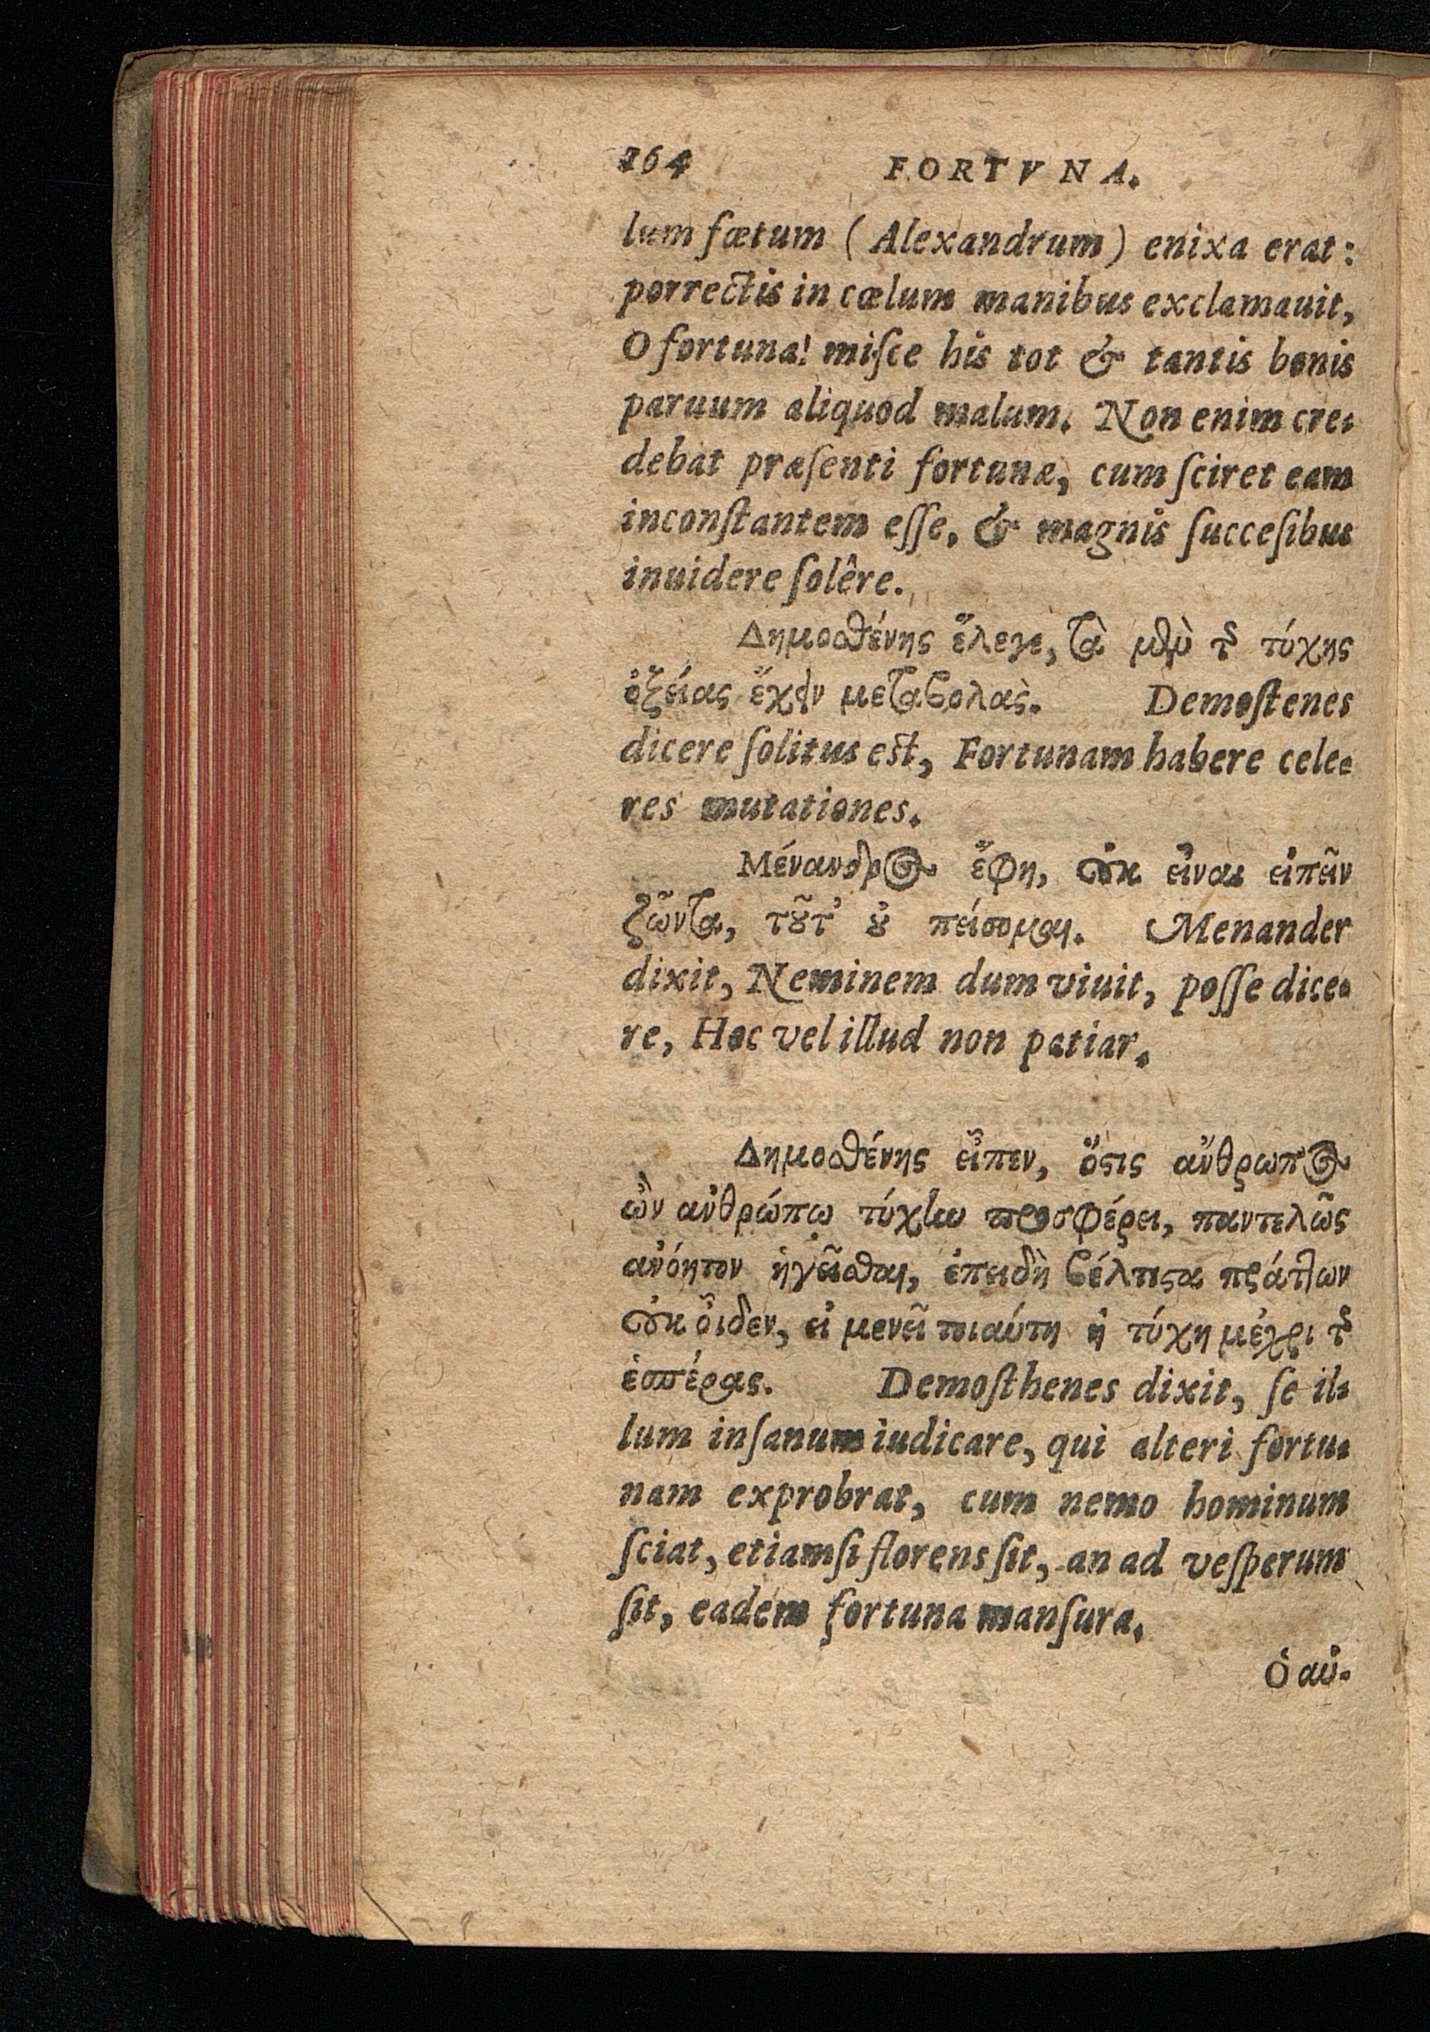 264 FORTVNA.
lum fœtum (Alexandrum) enixa erat:
porrectis in cœlum manibus exclamauit,
O fortuna! miſce his tot & tantis bonis
paruum aliquod malum. Non enim cre-
debat præſenti fortunæ, cum ſciret eam
inconſtantem eſſe, & magnis ſucceſibus
inuidere ſolêre.
Δημοσθένης ἔλεγε, τὰ μὲν τῆς τύχης
ὀξείας ἔχειν μεταβολὰς. Demoſtenes
dicere ſolitus eſt, Fortunam habere cele-
res mutationes.
Μένανδρος ἔφη, οὐκ εἶναι εἰπεῖν
ζῶντα, τοῦτ' οὐ πείσομαι. Menander
dixit, Neminem dum viuit, poſſe dice-
re, Hoc vel illud non patiar.
Δημοσθένης εἶπεν, ὅστις ἄνθρωπος
ὢν ἀνθρώπῳ τύχην προσφέρει, παντελῶς
ἀνόητον ἡγεῖσθαι, ἐπειδὴ βέλτιστα πράττων
οὐκ οἶδεν, εἰ μενεῖ τοιαύτη ἡ τύχη μέχρι τῆς
ἑσπέρας. Demoſthenes dixit, ſe il-
lum inſanum iudicare, qui alteri fortu-
nam exprobrat, cum nemo hominum
ſciat, etiamſi florens ſit, an ad veſperum
ſit, eadem fortuna manſura.
Ὁ αὐ-